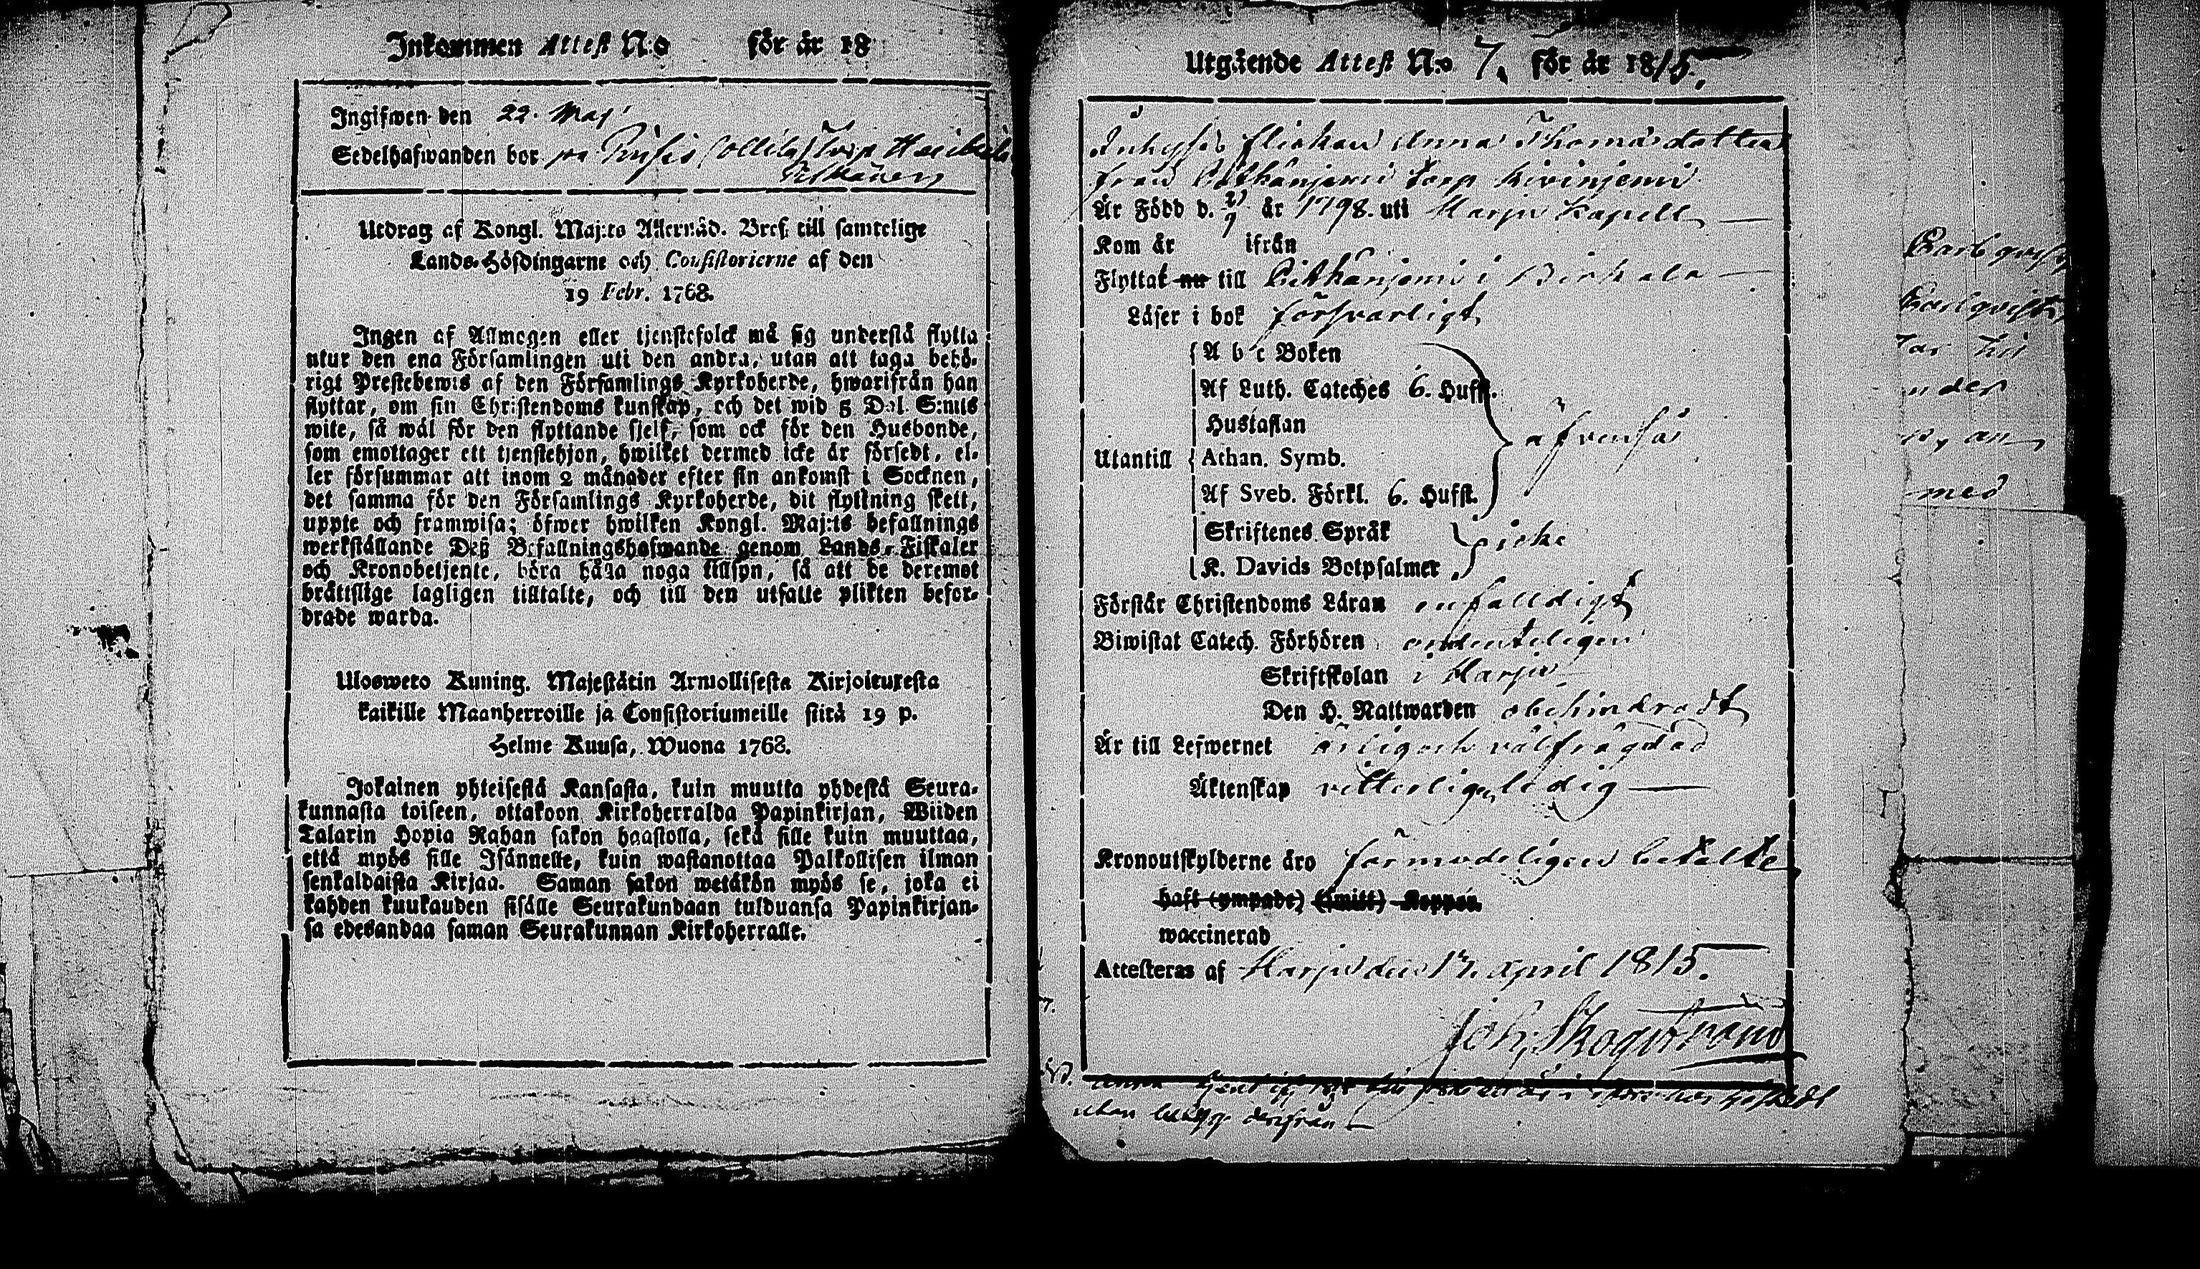 Inkommen Attest N:o för år 18
Ingifwen den 22. Maj
Sedelhafwanden bor på
Utdrag af Kongl. Maj:ts Allernåd. Bref till samtelige
Lands-Höfdingarne och Consistorierne af den
19 Febr. 1768.
Ingen af Allmogen eller tjenstefolck må sig understå flytta
utur den ena Församlingen uti den andra, utan att taga behö-
rigt Prestebewis af den Församlings Kyrkoherde, hwarifrån han
flyttar, om sin Christendoms kunskap, och det wid 5 Dal. S:mts
wite, så wäl för den flyttande sjelf, som ock för den Husbonde,
som emottager ett tjenstehjon, hwilket dermed icke är försedt, el-
ler försummar att inom 2 månader efter sin ankomst i Socknen,
det samma för den Församlings Kyrkoherde, dit flyttning skett,
uppte och framwisa; öfwer hwilken Kongl. Maj:ts befallnings
werkställande Deß Befallningshafwande genom Lands-Fiskaler
och Kronobetjente, böra hålla noga tillsyn, så att de deremot
bråttslige lagligen tilltalte, och till den utsatte plikten befor-
drade warda.
Ulosweto Kuning. Majestätin Armollisesta Kirjoituxesta
kaikille Maanherroille ja Consistoriumeille siitä 19 p.
Helme Kuusa, Wuona 1768.
Jokainen yhteisestä Kansasta, kuin muutta yhdestä Seura-
kunnasta toiseen, ottakoon Kirkoherralda Papinkirjan, Wiiden
Talarin Hopia Rahan sakon haastolla, sekä sille kuin muuttaa,
että myös sille Isännelle, kuin wastanottaa Palkollisen ilman
senkaldaista Kirjaa. Saman sakon wetäkön myös se, joka ei
kahden kuukauden sisälle Seurakundaan tulduansa Papinkirjan-
sa edesandaa saman Seurakunnan Kirkoherralle.
Utgående Attest N:o 7. för år 1815.
Inhyses flickan Anna Thomasdotter
från Pitkänjemi torp Kivinjemi
Är Född d. år 1798. uti Harju Kapell
Kom år ifrån
Flyttat nu till Pitkänjemi i Birkala
Läser i bok försvarligt
A b c Boken
Af Luth. Cateches 6. Hufst.
Hustaflan
Utantill Athan. Symb. äfvenså
Af Sveb. Förkl. 6. Hufst.
Skriftenes Språk icke
K. Davids Botpsalmer
Förstår Christendoms Läran enfalldigt
Biwistat Catech. Förhören ordenteligen
Skriftskolan i Harju
Den H. Nattwarden obehindradt
Är till Lefwernet ärlig och välfrägdad
Äktenskap vitterligen ledig
Kronoutskylderne äro förmodeligen betalte
haft (ympade) (smitt) Koppor.
waccinerad
Attesteras af Harju den 17. April 1815.
Joh. Skogstrand
utan derifrån
med